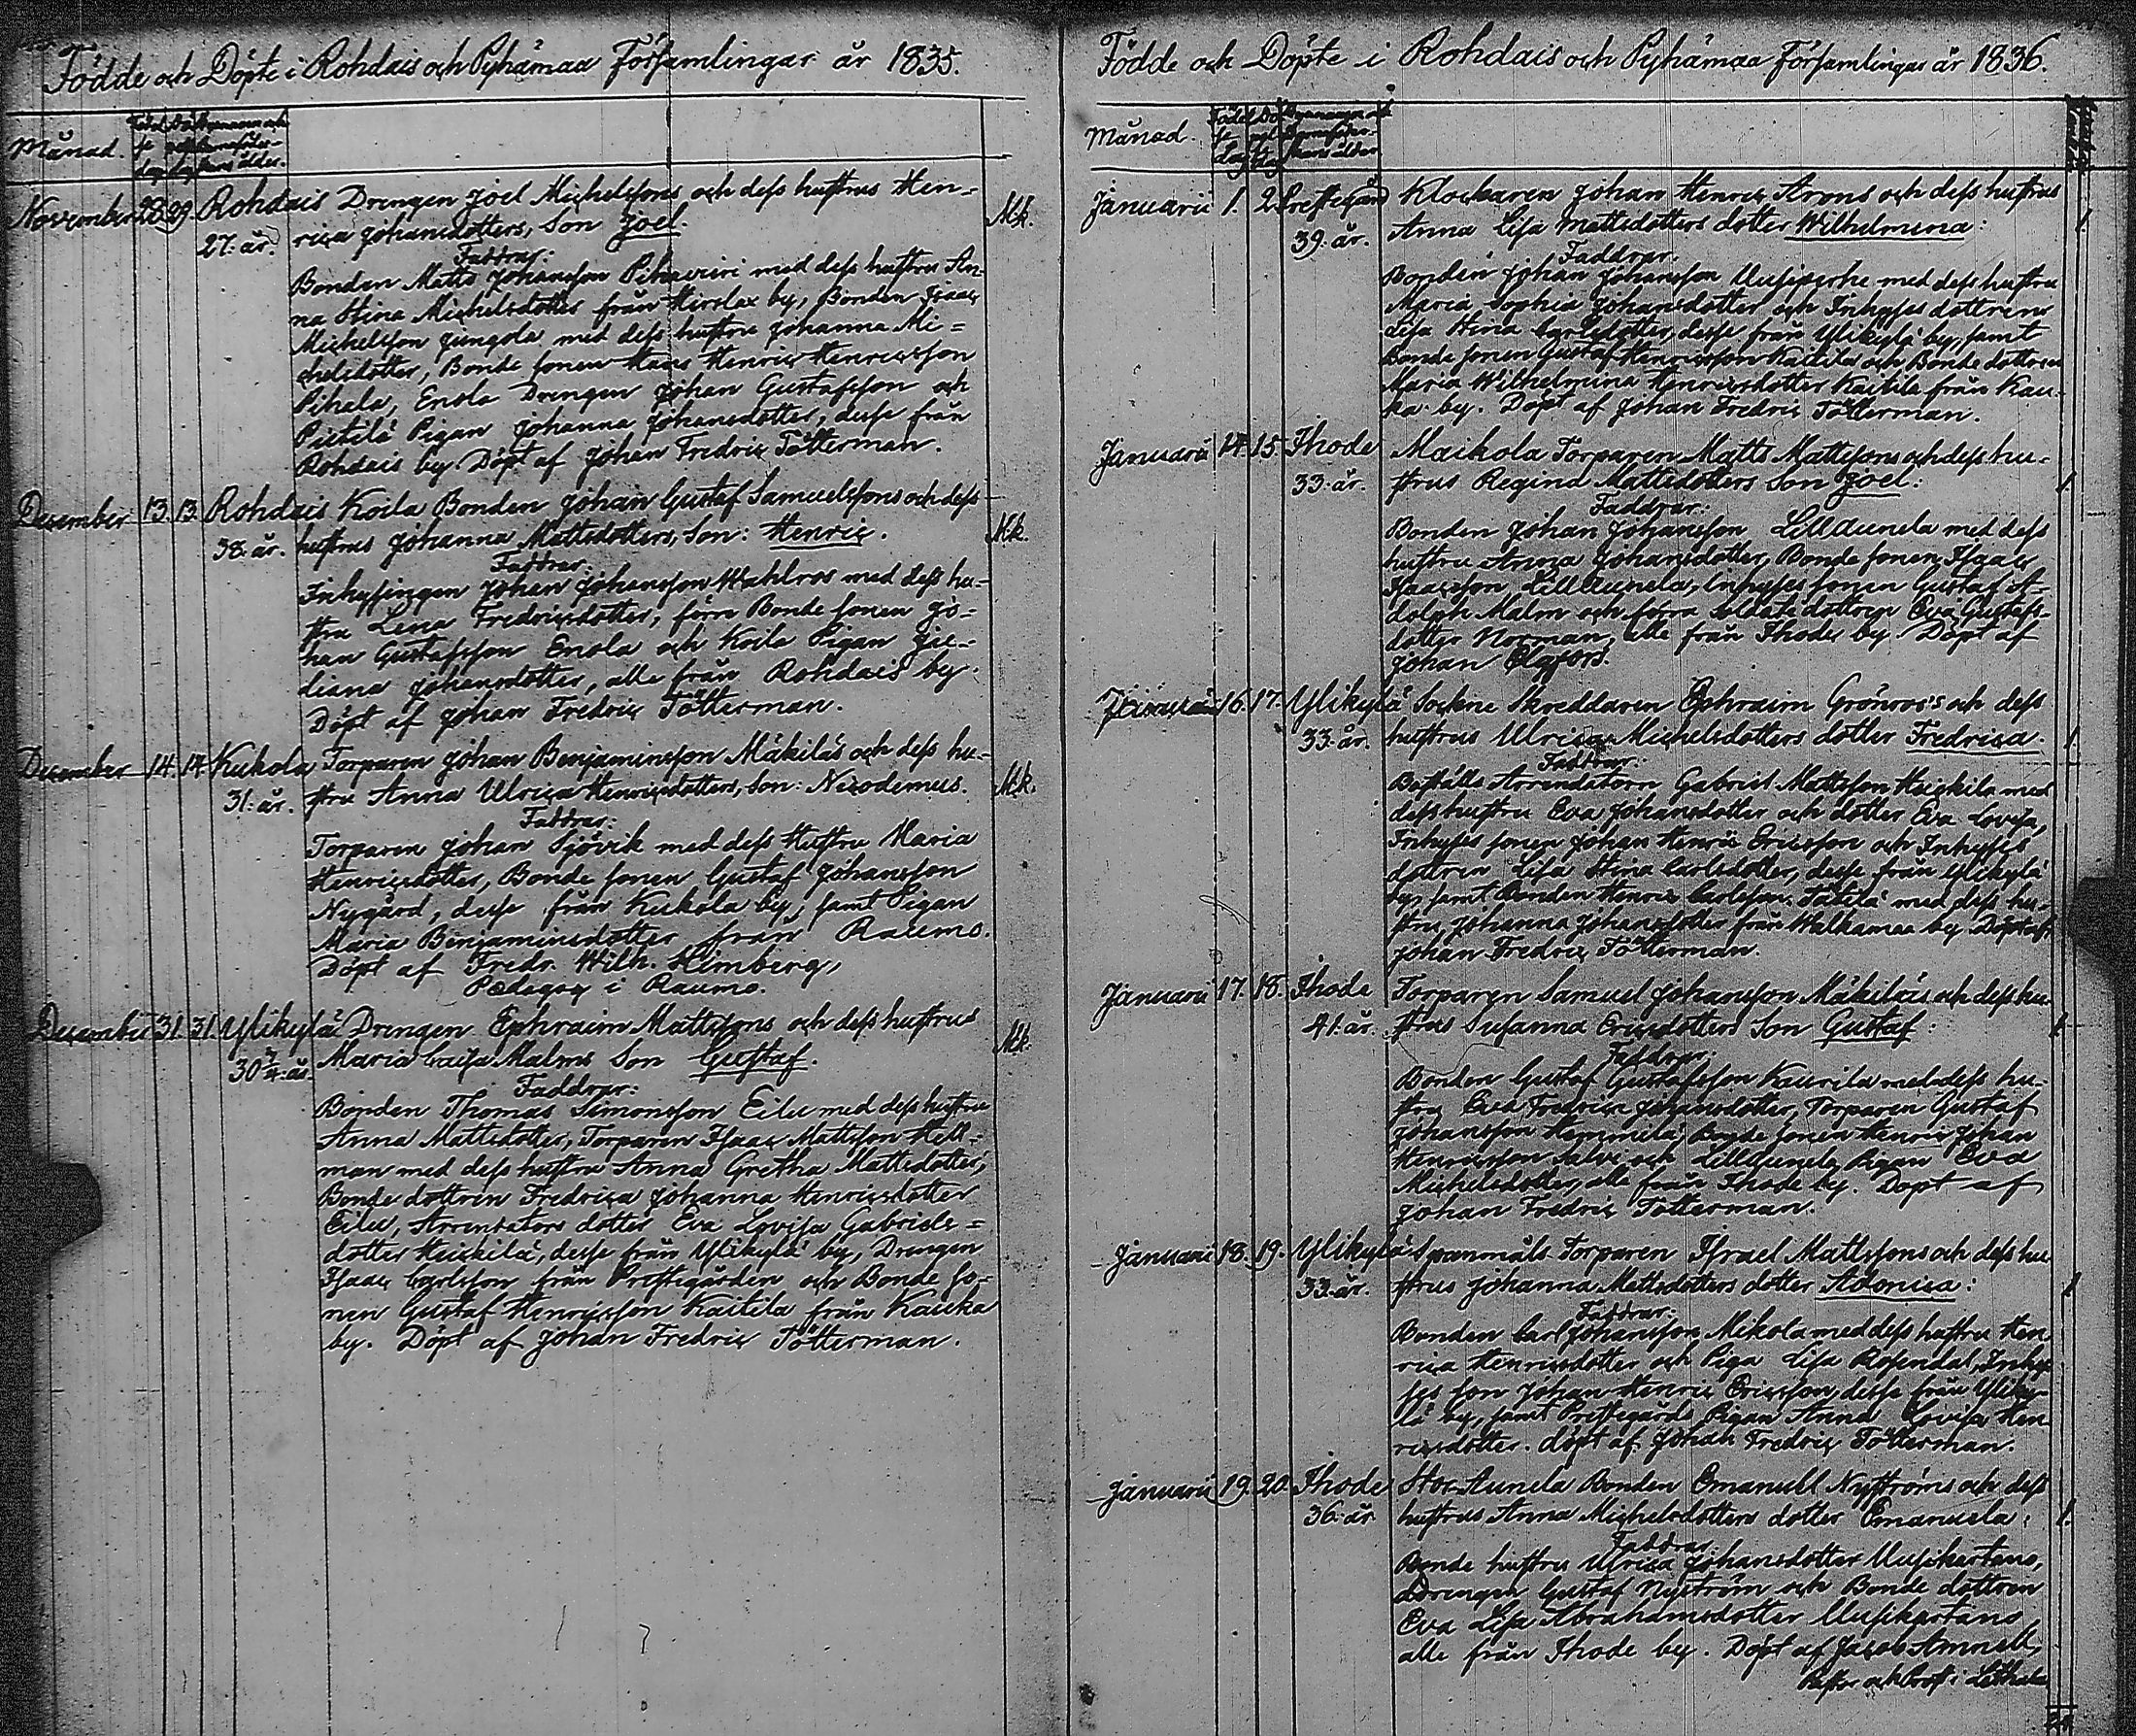 Födde och Döpte i Rohdais och Pyhämaa Församlingar år 1835.
Månad.
November 28. 29. Rohdais Drengen Joel Michelssons och dess hustrus Hen=
27. år. rica Johansdotters, Son Joel. Mk.
Faddrar:
Bonden Matts Johansson med dess hustru An-
na Stina Michelsdotter från Hirslax by, Bonden Isaac
Michelsson Jungola med dess hustru Johanna Mi=
chelsdotter, Bonde sonen Hans Henric Henricsson
Pihala, Enola Drengen Johan Gustafsson och
Pietilä Pigan Johanna Johansdotter, desse från
Rohdais by. Döpt af Johan Fredric Tötterman.
December 13. 13. Rohdais Koila Bonden Johan Gustaf Samuelssons och dess
38. år. hustrus Johanna Mattsdotters, Son: Henric. Mk.
Faddrar:
Inhysingen Johan Johansson Wahlros med dess hu=
stru Lena Fredricsdotter, förra Bonde sonen Jo=
han Gustafsson Enola och Koila Pigan Ju=
liana Johansdotter, alle från Rohdais by.
Döpt af Johan Fredric Tötterman.
December 14. 14. Kukola Torparen Johan Benjaminsson Mäkiläs och dess hu=
31. år. stru Anna Ulrica Henricsdotters, Son: Nicodemus. Mk.
Faddrar:
Torparen Johan Sjövik med dess Hustru Maria
Henricsdotter, Bonde sonen Gustaf Johansson
Nygård, desse från Kukola by, samt Pigan
Maria Benjaminsdotter från Raumo.
Döpt af Fredr. Wilh. Limberg,
Pædagog i Raumo.
December 31. 31. Ylikylä Drengen Ephraim Mattssons och dess hustrus
30 3/4. år. Maria Caisa Malms Son Gustaf. Mk.
Faddrar:
Bonden Thomas Simonsson Eilu med dess hustru
Anna Mattsdotter, Torparen Isaac Mattsson Hell=
man med dess hustru Anna Gretha Mattsdotter,
Bonde dottren Fredrica Johanna Henricsdotter
Eilu, Arrendators dotter Eva Lovisa Gabriels=
dotter Heickilä, desse från Ylikylä by, Drengen
Isaac Carlsson från Prestegården och Bonde so=
nen Gustaf Henricsson Kaitila från Kauka
by. Döpt af Johan Fredric Tötterman.
Födde och Döpte i Rohdais och Pyhämaa Församlingar år 1836.
Månad.
Januarii 1. 2. Prestegård Klockaren Johan Henric Arons och dess hustrus
39. år. Anna Lisa Mattsdotters dotter Wilhelmina: 1.
Faddrar.
Bonden Johan Johansson Uusiperhe med dess hustru
Maria Sophia Johansdotter och Inhyses dottren
Lisa Stina Carlsdotter, desse från Ylikylä by, samt
Bonde sonen Gustaf Henricsson Kaitila och Bonde dottren
Maria Wilhelmina Henricsdotter Kaitila från Kau-
ka by. Döpt af Johan Fredric Tötterman.
Januarii 14. 15. Ihode Maikola Torparen Matts Mattssons och dess hu=
33. år. strus Regina Mattsdotters Son Joel: 1.
Faddrar:
Bonden Johan Johansson LillAunela med dess
hustru Anna Johansdotter, Bonde sonen Isaac
Isaacsson LillAunela, Inhyses sonen Gustaf A-
dolph Malm och förra Soldats dottren Eva Gustafs-
dotter Norman, alle från Ihode by. Döpt af
Johan Elgfors.
Januarii 16. 17. Ylikylä Sockne Skreddaren Ephraim Grönroos's och dess
33. år. hustrus Ulrica Michelsdotters dotter Fredrica. 1.
Faddrar:
Boställs Arrendatorn Gabriel Mattsson Heickilä med
dess hustru Eva Johansdotter och dotter Eva Lovisa,
Inhyses sonen Johan Henric Ericsson och Inhyses
dottren Lisa Stina Carlsdotter, desse från Ylikylä
by, samt Bonden Henric Carlsson Tätilä med dess hu-
stru Johanna Johansdotter från Walkamaa by. Döpt af
Johan Fredric Tötterman.
Januarii 17. 18. Ihode Torparen Samuel Johansson Mäkiläs och dess hu-
41. år. strus Susanna Ericsdotters Son Gustaf: 1.
Faddrar:
Bonden Gustaf Gustafsson Kaurila med dess hu-
stru Eva Fredrica Johansdotter, Torparen Gustaf
Johansson Hemmilä, Bonde sonen Henric Johan
Henricsson Salvi och LillAunela Pigan Eva
Michelsdotter, alle från Ihode by. Döpt af
Johan Fredric Tötterman.
Januarii 18. 19. Ylikylä Torparen Israel Mattssons och dess hu
33. år. strus Johanna Mattsdotters dotter Adonica: 1
Faddrar:
Bonden Carl Johansson Mikola med dess hustru Hen
rica Henricsdotter och Piga Lisa Rosendal, Inhy
ses son Johan Henric Ericsson, desse från Yliky-
lä by, samt Prestegårds Pigan Anna Lovisa Hen
ricsdotter. döpt af Johan Fredric Tötterman.
Januarii 19. 20. Ihode StorAunela Bonden Emanuell Nyströms och dess
36. år hustrus Anna Michelsdotters dotter Emanuela: 1.
Faddrar
Bonde hustru Ulrica Johansdotter Uusikartano,
Drengen Gustaf Nyström och Bonde dottren
Eva Lisa Abrahamsdotter Uusikartano
alle från Ihode by. Döpt af Jacob Amnell,
och Prost i